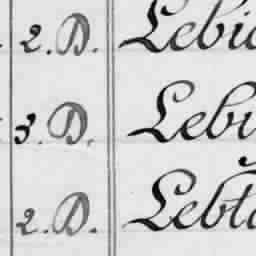 2. D. Lebi
3. D. Leb
2. D. Lebt